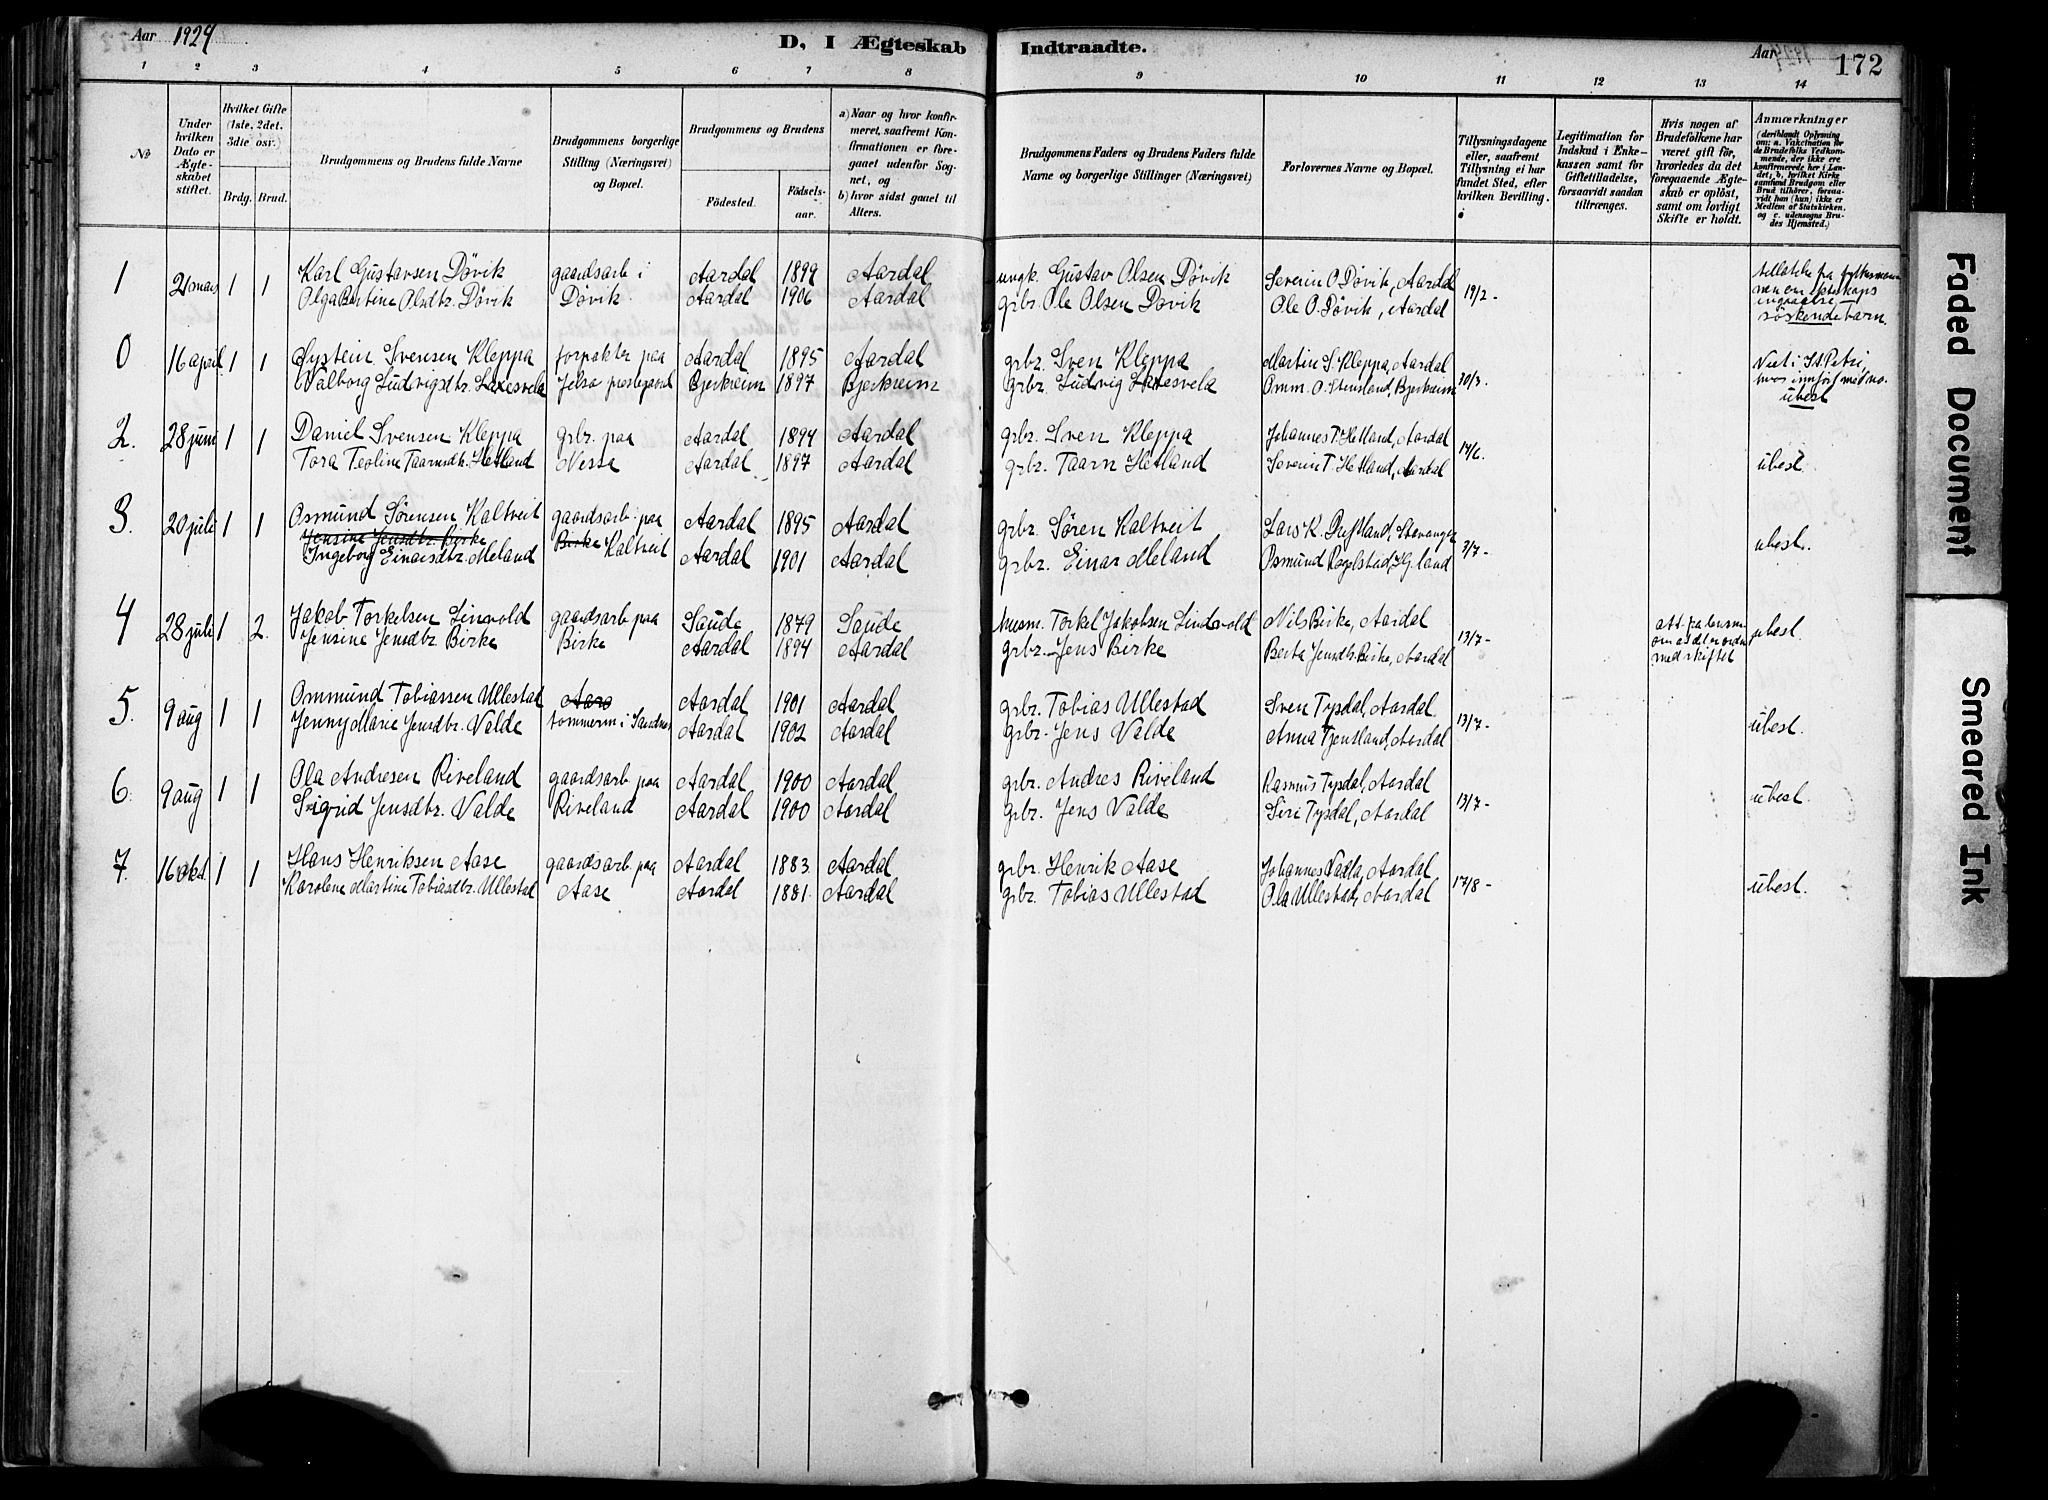 Aar 1924
D, I Ægteskab Indtraadte.
Aar
172
1 2 3 4 5 6 7 8 9 10 11 12 13 14
No
Under hvilken Dato er Ægteskabet stiftet.
Hvilket Gifte (1ste, 2det, 3die osv.)
Brdg. Brud.
Brudgommens og Brudens fulde Navne
Brudgommens borgerlige Stilling (Næringsvei) og Bopæl.
Brudgommens og Brudens
Födested.
Födselsaar.
a) Naar og hvor konfirmeret, saafremt Konfirmationen er foregaaet udenfor Sognet, og
b) hvor sidst gaaet til Alters.
Brudgommens Faders og Brudens Faders fulde Navne og borgerlige Stillinger (Næringsvei)
Forlovernes Navne og Bopæl.
Tillysningsdagene eller, saafremt Tillysning ei har fundet Sted, efter hvilken Bevilling.
Legitimation for Indskud i Enkekassen samt for Giftetilladelse, forsaavidt saadan tiltrænges.
Hvis nogen af Brudefolkene har været gift för, hvorledes da det foregaaende Ægteskab er oplöst, samt om lovligt Skifte er holdt.
Anmærkninger
(deriblandt Oplysning om: a. Vakcination for de Brudefolks Vedkommende, der ikke ere konfirmerede her i Landet; b, hvilket Kirkesamfund Brudgom eller Brud tilhörer, forsaavidt han (hun) ikke er Medlem af Statskirken, og c. udensogns Brudes Hjemsted.)
1 2 mars 1 1 Karl Gustavsen Dövik gaardsarb i Aardal 1899 Aardal ungk. Gustav Olsen Dövik Severin O. Dövik, Aardal 19/2-
Olga Bertine Olsdtr. Dövik Dövik. Aardal 1906 Aardal grbr. Ole Olsen Dövik Ole O. Dövik, Aardal
söskendebarn.
0 16 april 1 1 Øystein Svensen Kleppa forpakter paa Aardal 1895 Aardal grbr. Sven Kleppa Martin S. Kleppa, Aardal 30/3.
Valborg Ludvigsdtr. Laxesvela Jelsa prestegaard Bjerkreim 1897 Bjerkreim grbr. Ludvig Laxesvela Omm. O. Stensland, Bjerkreim
Viet i St. Petri, hvor innført med no.
ubesl
2. 28 juni 1 1 Daniel Svensen Kleppa grbr. paa Aardal 1894 Aardal grbr. Sven Kleppa Johannes T. Hetland, Aardal 14/6.
Tora Teoline Taarnsdtr. Hetland Nessa Aardal 1897 Aardal grbr. Taarn Hetland Severin T. Hetland, Aardal ubesl.
3. 20 juli 1 1 Osmund Sörensen Kaltveit gaardsarb. paa Aardal 1895 Aardal grbr. Sören Kaltveit Lars K. Stavanger 3/7-
Jensine Jensdtr. Birke
Ingeborg Einarsdtr. Meland Birke Kaltveit Aardal 1901 Aardal grbr. Einar Meland Osmund ubesl.
4 28 juli 1 2. Jakob Torkelsen Lindvold gaardsarb paa Saude 1879 Saude husm. Torkel Jakobsen Lindvold Nils Birke, Aardal 13/7-
Jensine Jensdtr. Birke Birke Aardal 1894 Aardal grbr. Jens Birke Berta Jensdtr. Birke, Aardal med skiftet ubesl.
5. 9 aug 1 1 Ommund Tobiassen Ullestad Aardal 1901 Aardal grbr. Tobias Ullestad Sven Tysdal, Aardal. 13/7-
Jenny Marie Jensdtr. Valde tömmerm i Sandnes Aardal 1902 Aardal grbr. Jens Valde Anna Tjensland, Aardal ubesl.
6. 9 aug 1 1 Ola Andresen Riveland gaardsarb paa Aardal 1900 Aardal grbr. Andres Riveland Rasmus Tysdal, Aardal 13/7-
Sigrid Jensdtr. Valde Riveland Aardal 1900 Aardal grbr. Jens Valde Siri Tysdal, Aardal ubesl.
7. 16 okt 1 1 Hans Henriksen Aase gaardsarb. paa Aardal 1883 Aardal grbr. Henrik Aase Johannes Vadla, Aardal 17/8-
Karolene Martine Tobiasdtr. Ullestad Aase Aardal 1881 Aardal grbr. Tobias Ullestad Ola Ullestad, Aardal ubesl.
Faded Document
Smeared Ink